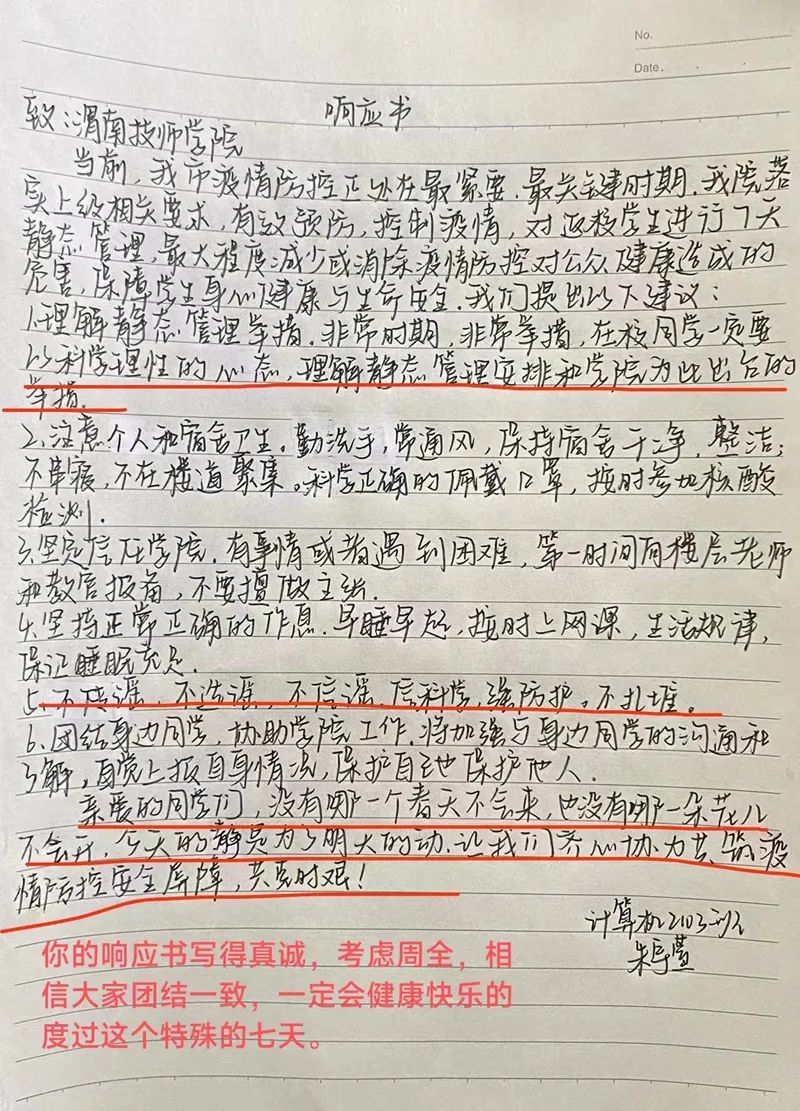 No.
Date.
响应书
致:渭南技师学院
当前,我市疫情防控正处在最紧要.最关键时期.我院落
实上级相关要求,有效预防,控制疫情,对返校学生进行7天
静态管理,最大程度减少或消除疫情防控对公众健康造成的
危害,保障学生身心健康与生命安全.我们提出以下建议:
1.理解静态管理举措.非常时期,非常举措,在校同学一定要
以科学理性的心态,理解静态管理安排和学院为此出台的
举措.
2.注意个人和宿舍卫生.勤洗手,常通风,保持宿舍干净,整洁;
不串寝,不在楼道聚集。科学正确的佩戴口罩,按时参加核酸
检测.
3.坚定信任学院.有事情或者遇到困难,第一时间向楼层老师
和教官报备,不要擅做主张.
4.坚持正常正确的作息.早睡早起,按时上网课,生活规律,
保证睡眠充足.
5.不传谣,不造谣,不信谣.信科学,强防护。不扎堆。
6.团结身边同学,协助学院工作.将加强与身边同学的沟通和
了解,自觉上报自身情况,保护自己也保护他人.
亲爱的同学们,没有哪一个春天不会来,也没有哪一朵花儿
不会开,今天的静是为了明天的动.让我们齐心协力共筑疫
情防控安全屏障,共克时艰!
计算机2103班
朱
你的响应书写得真诚,考虑周全,相
信大家团结一致,一定会健康快乐的
度过这个特殊的七天。